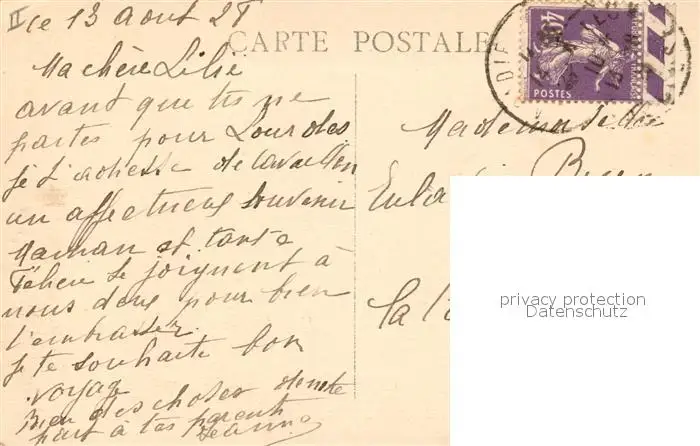 II
le 13 aout 28
CARTE POSTALE
Ma chère Lilie
avant que tu ne
partes pour Lourdes
je t'adresse de Cavaillon
un affectueux souvenir
Maman et tante
se joignent à
nous deux pour bien
t'embrasser.
je te souhaite bon
voyage
Bien des choses de notre
part à tes parents
Jeanne
40
POSTES
Mademoiselle
La
privacy protection
Datenschutz